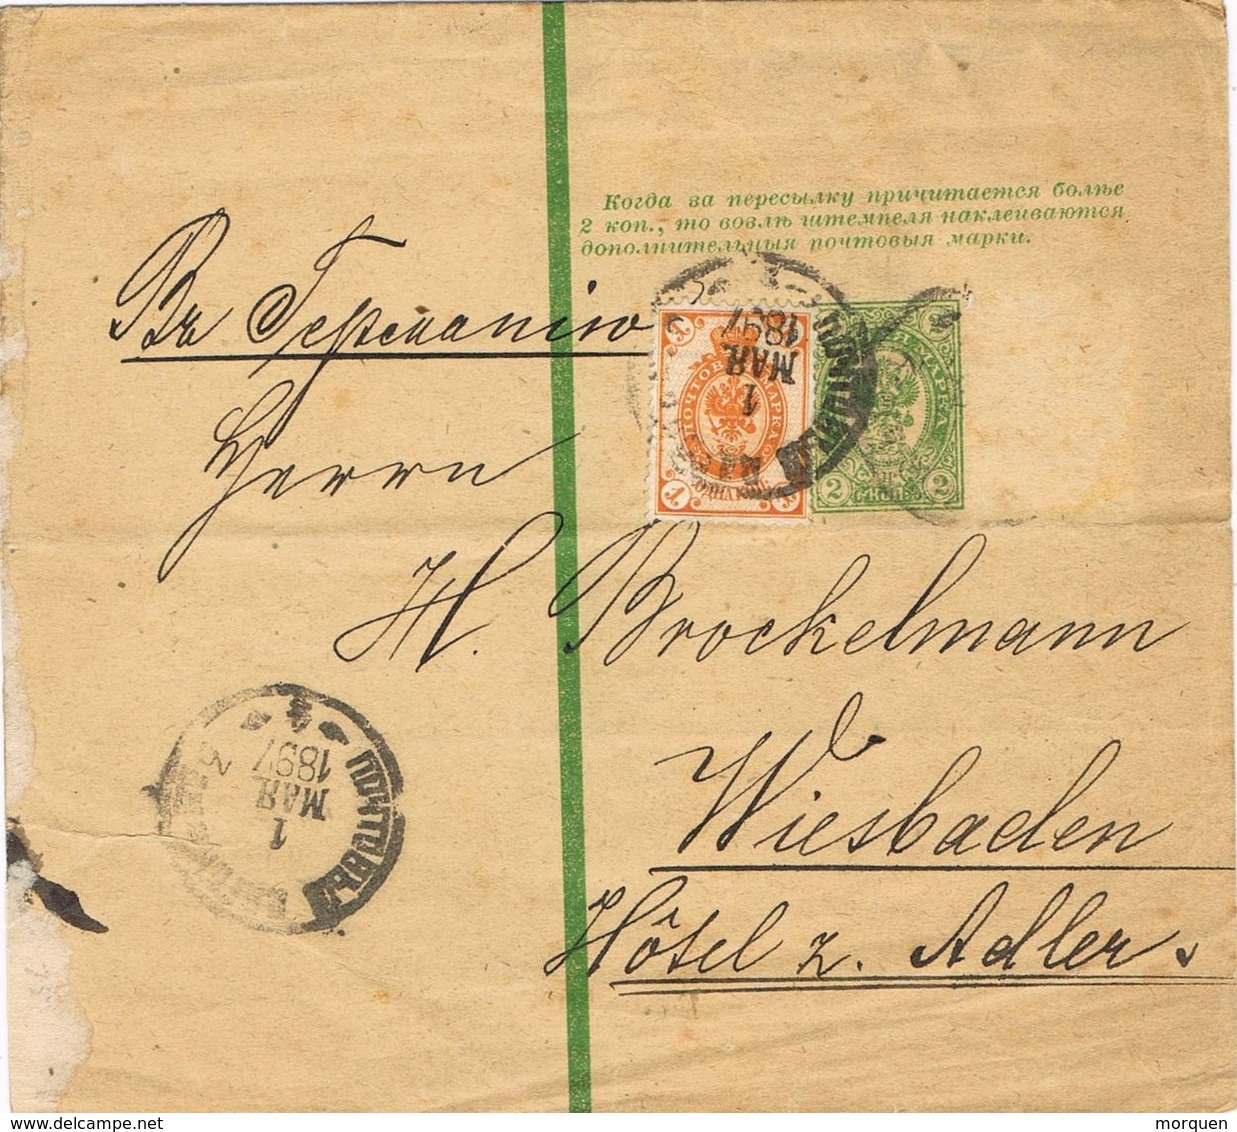 Когда за пересылку причитается болѣе
2 коп., то возлѣ штемпеля наклеиваются
дополнительныя почтовыя марки.
Въ Германію
Herrn
H. Brockelmann
Wiesbaden
Hôtel z. Adler.
1
ПОЧТОВАЯ МАРКА
1
1 МАЯ 1897
2
2
1
МАЯ
1897
www.delcampe.net
morquen